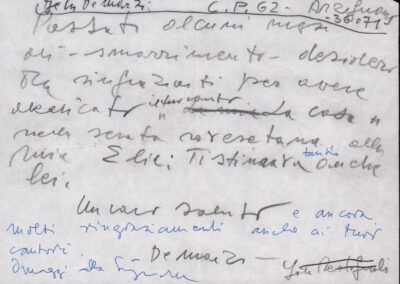 Bepi De Marzi - C.P. 62 - Arzignano
- 36071
Passati alcuni mesi
di - smarrimento - desidero
ringraziarti per avere
dedicato "
nella serata roveretana alla
mia Elia: Ti stimava tanto anche
lei.
Un caro saluto e ancora
molti ringraziamenti anche ai tuoi
cantori. - De Marzi -
Omaggi alla Signora